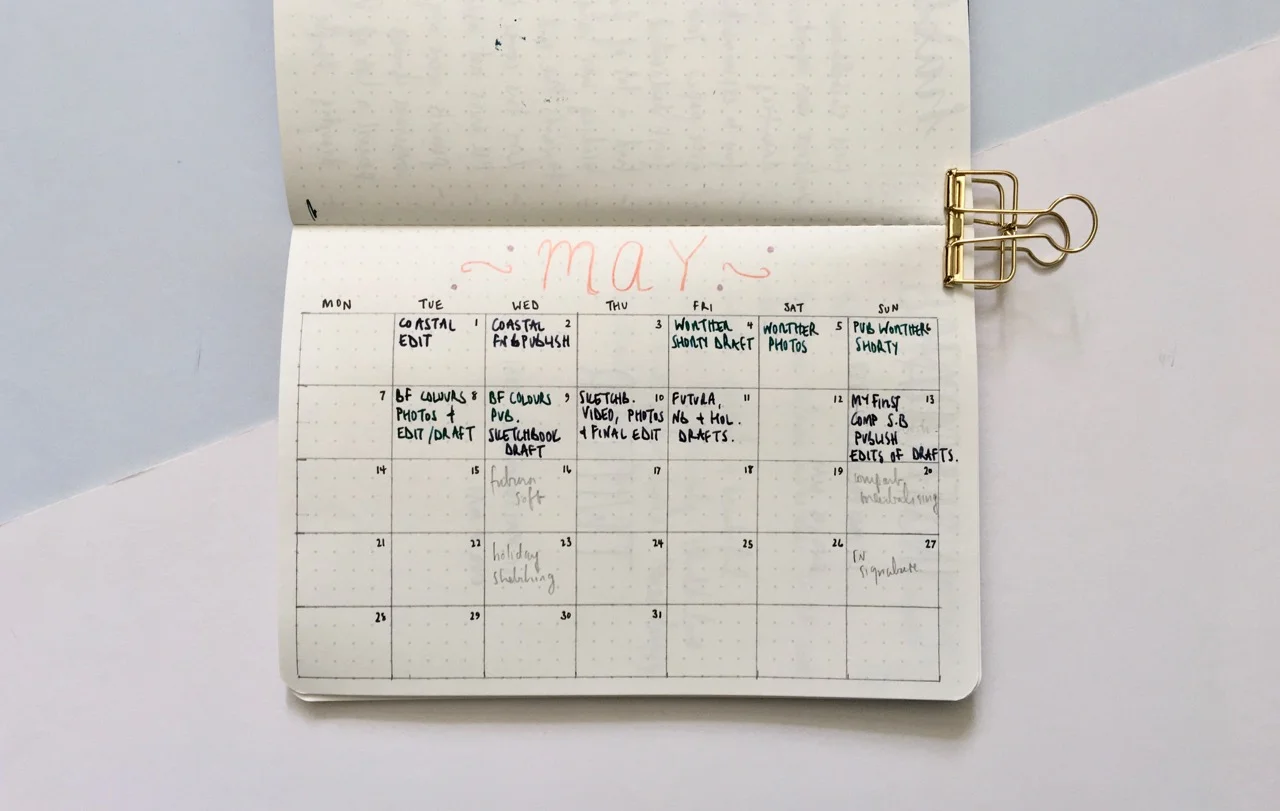 ~ MAY ~
MON TUE WED THU FRI SAT SUN
COASTAL 1
EDIT
COASTAL 2
PUBLISH
3
4
SHORTY DRAFT
5
PHOTOS
PUB
SHORTY
7
BF COLOURS 8
PHOTOS +
EDIT/DRAFT
BF COLOURS 9
PUB.
SKETCHBOOK
DRAFT
SKETCHB. 10
VIDEO, PHOTOS
+ FINAL EDIT
FUTURA, 11
NB + HOL.
DRAFTS.
12
MY FIRST 13
COMP S.B
PUBLISH
EDITS OF DRAFTS.
14
15
16
soft
17
18
19
20
21
22
holiday 23
sketching
24
25
26
27
signature
28
29
30
31